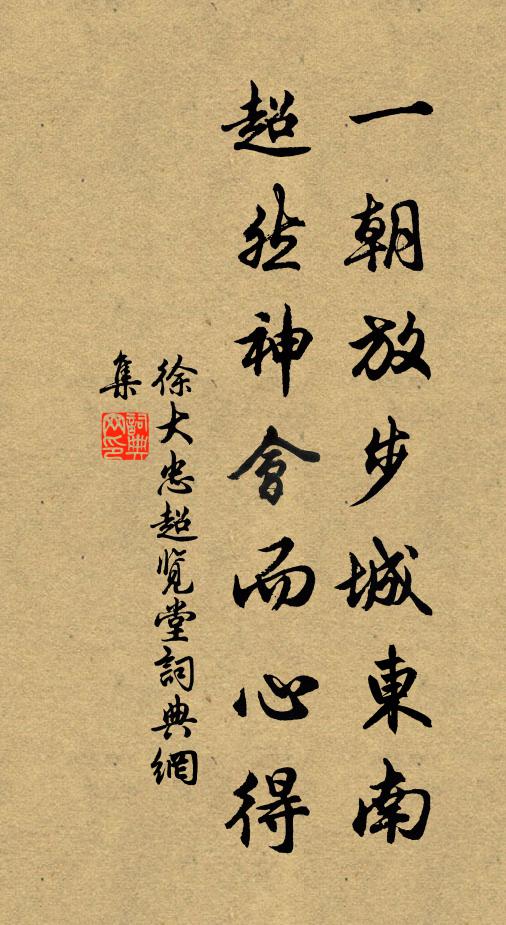 一朝放步城東南
超然神會而心得
徐大忠超览堂詞典網
集
詞典
网印